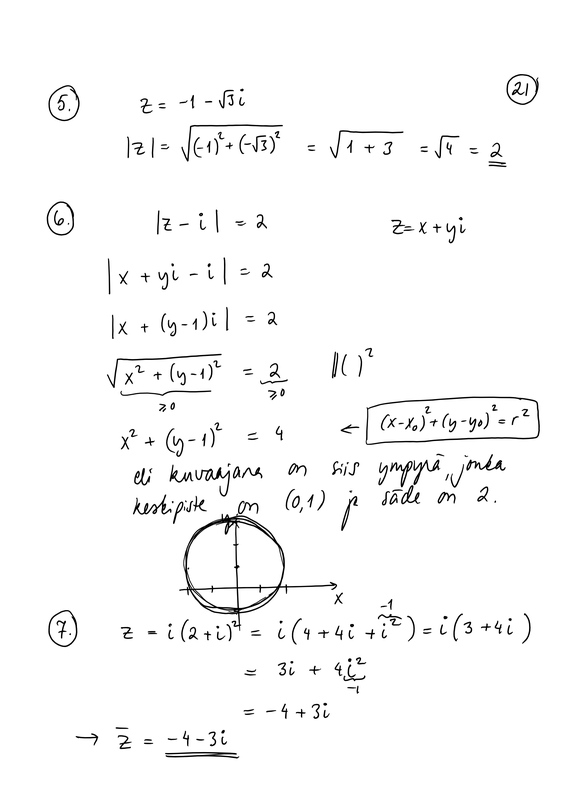 21
5. z = -1 - √3i
|z| = √((-1)² + (-√3)²) = √(1 + 3) = √4 = 2
6. |z - i| = 2 z = x + yi
|x + yi - i| = 2
|x + (y-1)i| = 2
√(x² + (y-1)²) = 2 ||( )²
≥0 ≥0
x² + (y-1)² = 4 ← (x-x₀)² + (y-y₀)² = r²
eli kuvaajana on siis ympyrä, jonka
keskipiste on (0,1) ja säde on 2.
y
x
-1
7. z = i(2+i)² = i(4 + 4i + i²) = i(3 + 4i)
= 3i + 4i²
-1
= -4 + 3i
→ z̅ = -4 - 3i